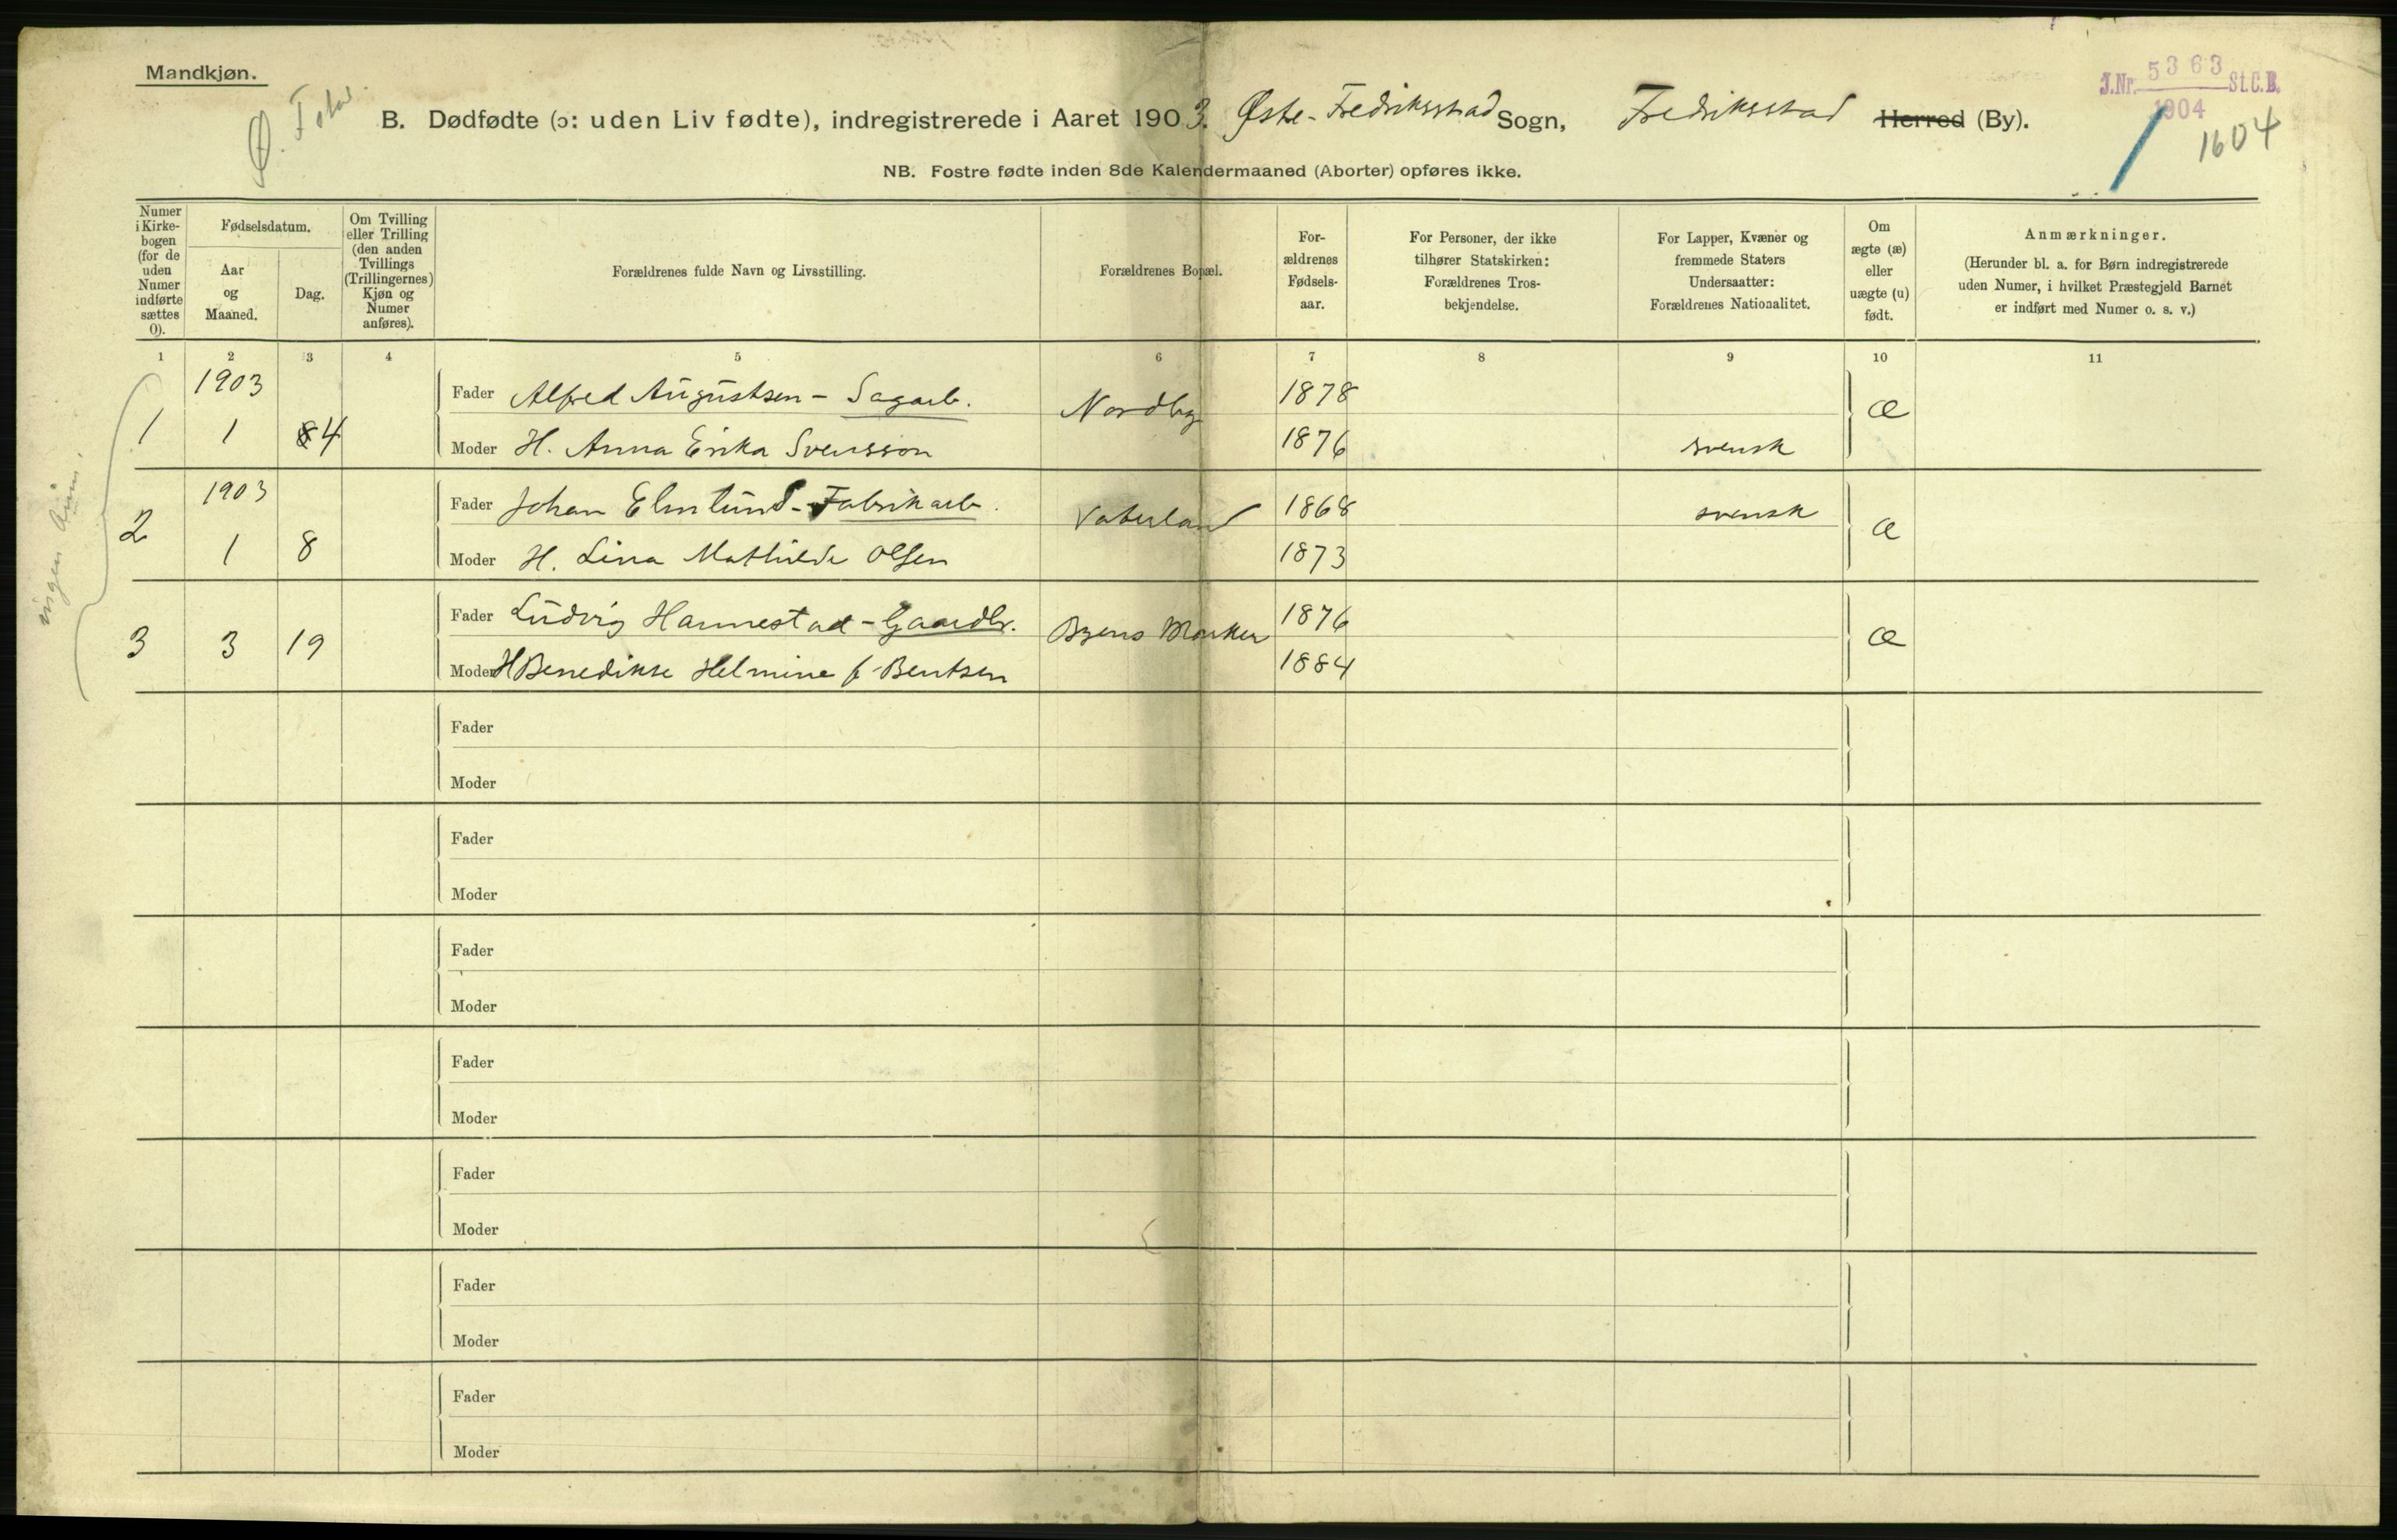 Mandkjøn.
J.Nr. 5363 St.C.B.
1904
1604
B. Dødfødte (ɔ: uden Liv fødte), indregistrerede i Aaret 1903. Østre-Fredriksstad Sogn, Fredriksstad Herred (By).
NB. Fostre fødte inden 8de Kalendermaaned (Aborter) opføres ikke.
Numer i Kirkebogen (for de uden Numer indførte sættes 0).
Fødselsdatum.
Aar og Maaned.
Dag.
Om Tvilling eller Trilling (den anden Tvillings (Trillingernes) Kjøn og Numer anføres).
Forældrenes fulde Navn og Livsstilling.
Forældrenes Bopæl.
For-ældrenes Fødsels-aar.
For Personer, der ikke tilhører Statskirken: Forældrenes Tros-bekjendelse.
For Lapper, Kvæner og fremmede Staters Undersaatter: Forældrenes Nationalitet.
Om ægte (æ) eller uægte (u) født.
Anmærkninger.
(Herunder bl. a. for Børn indregistrerede uden Numer, i hvilket Præstegjeld Barnet er indført med Numer o. s. v.)
1 2 3 4 5 6 7 8 9 10 11
1903 Fader Alfred Augustsen - Sagarb. Nordby 1878 æ
1 1 4 Moder H. Anna Erika Svensson 1876 svensk
1903 Fader Johan Elmlund - Fabrikarb. Vaterland 1868 svensk æ
2 1 8 Moder H. Lina Mathilde Olsen 1873
Fader Ludvig Hannestad - Gaardbr. Byens Marker 1876 æ
3 3 19 Moder H Benedikte Helmine f. Bentsen 1884
Fader
Moder
Fader
Moder
Fader
Moder
Fader
Moder
Fader
Moder
Fader
Moder
Fader
Moder